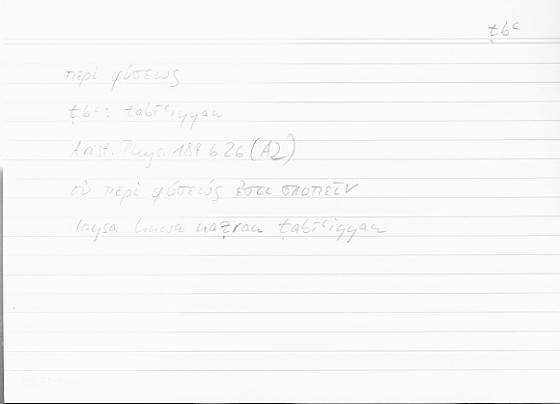 ṭbᶜ
περὶ φύσεως
ṭbᶜ: ṭabīᶜiyyan
Arist. Phys. 184 b 26 (A2)
οὐ περὶ φύσεώς ἐστι σκοπεῖν
laysa huwa naẓran ṭabīᶜiyyan